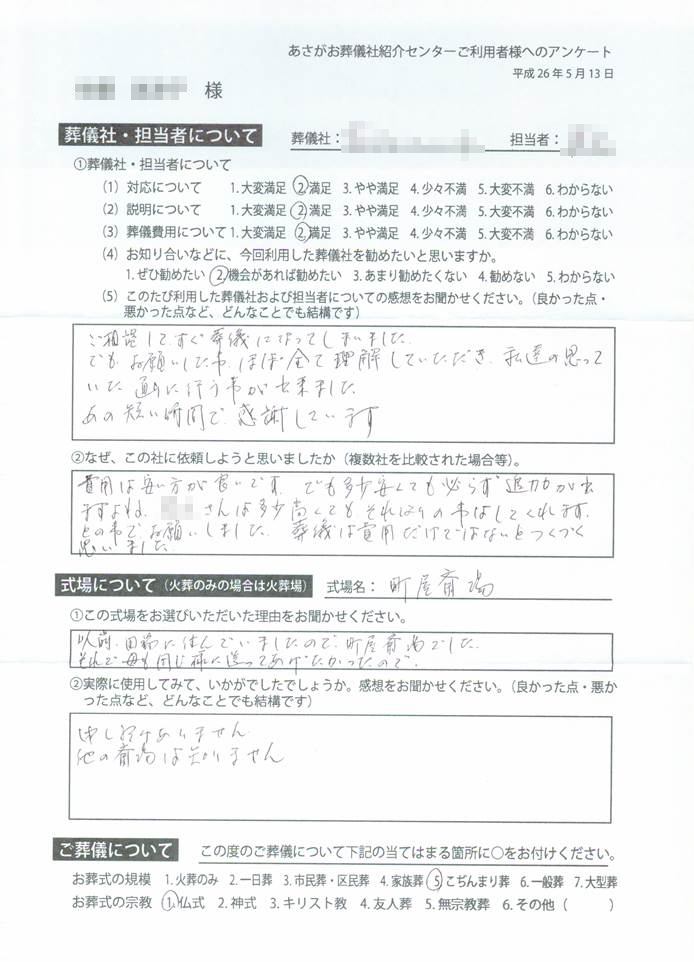 あさがお葬儀社紹介センターご利用者様へのアンケート
平成26年5月13日
様
葬儀社・担当者について 葬儀社： 担当者：
①葬儀社・担当者について
(1) 対応について 1.大変満足 2.満足 3.やや満足 4.少々不満 5.大変不満 6.わからない
(2) 説明について 1.大変満足 2.満足 3.やや満足 4.少々不満 5.大変不満 6.わからない
(3) 葬儀費用について 1.大変満足 2.満足 3.やや満足 4.少々不満 5.大変不満 6.わからない
(4) お知り合いなどに、今回利用した葬儀社を勧めたいと思いますか。
1.ぜひ勧めたい 2.機会があれば勧めたい 3.あまり勧めたくない 4.勧めない 5.わからない
(5) このたび利用した葬儀社および担当者についての感想をお聞かせください。（良かった点・
悪かった点など、どんなことでも結構です）
ご相談してすぐ葬儀になってしまいました。
でも、お願いした事、ほぼ全て理解していただき、私達の思って
いた通りに行う事が出来ました。
あの短い時間で、感謝しています
②なぜ、この社に依頼しようと思いましたか（複数社を比較された場合等）。
費用は安い方が良いです。でも多少安くても必らず追加が出
ますよね。さんは多少高くてもそれなりの事はしてくれます。
との事でお願いしました。葬儀は費用だけではないとつくづく
思いました。
式場について（火葬のみの場合は火葬場） 式場名： 町屋斎場
①この式場をお選びいただいた理由をお聞かせください。
以前、田端に住んでいましたので、町屋斎場でした。
それで母も同じ様に送ってあげたかったので。
②実際に使用してみて、いかがでしたでしょうか。感想をお聞かせください。（良かった点・悪か
った点など、どんなことでも結構です）
申し訳ありません
他の斎場は知りません
ご葬儀について この度のご葬儀について下記の当てはまる箇所に○をお付けください。
お葬式の規模 1.火葬のみ 2.一日葬 3.市民葬・区民葬 4.家族葬 5.こぢんまり葬 6.一般葬 7.大型葬
お葬式の宗教 1.仏式 2.神式 3.キリスト教 4.友人葬 5.無宗教葬 6.その他（ ）